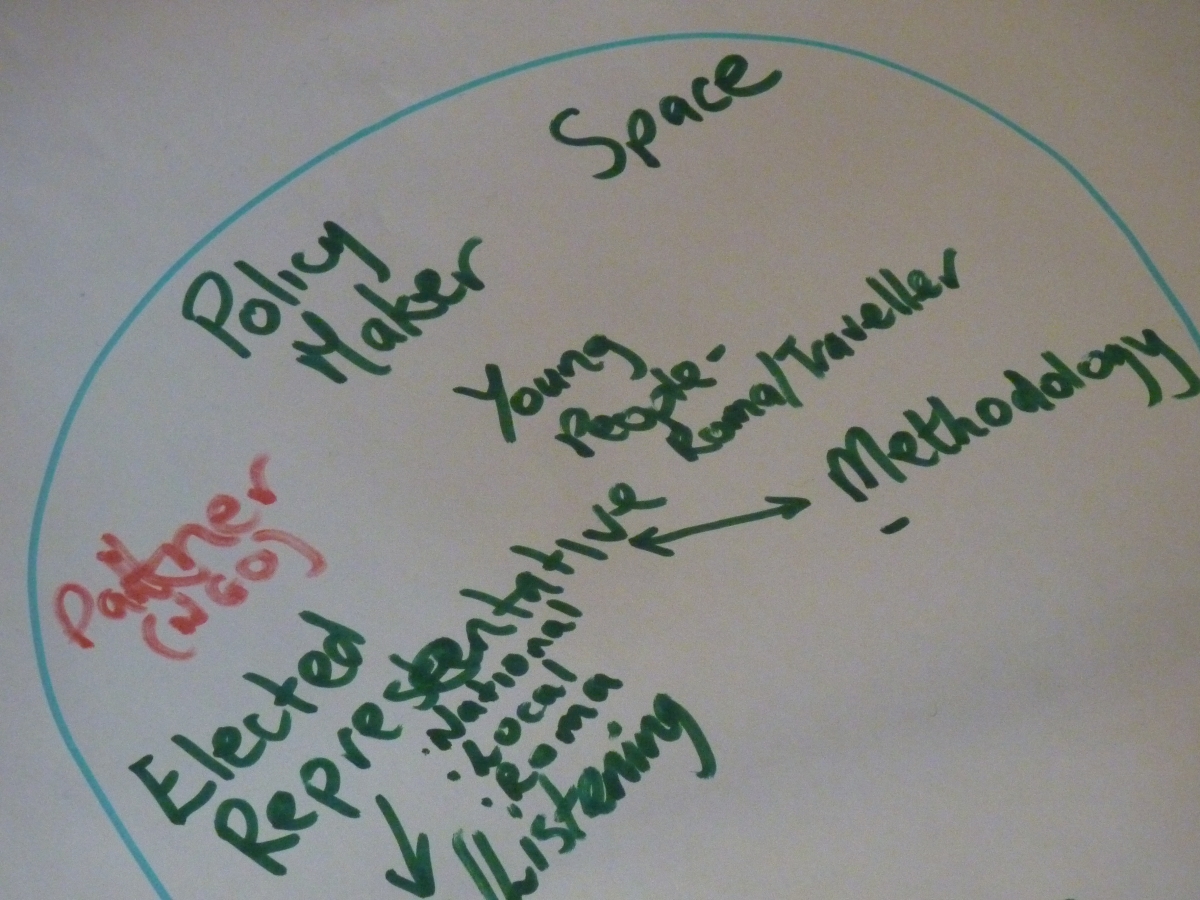 Space
Policy
Maker
Young
People -
Roma/Traveller
Methodology
-
Partner
(NGO)
Elected
Representative
. National
. Local
. Roma
Listening